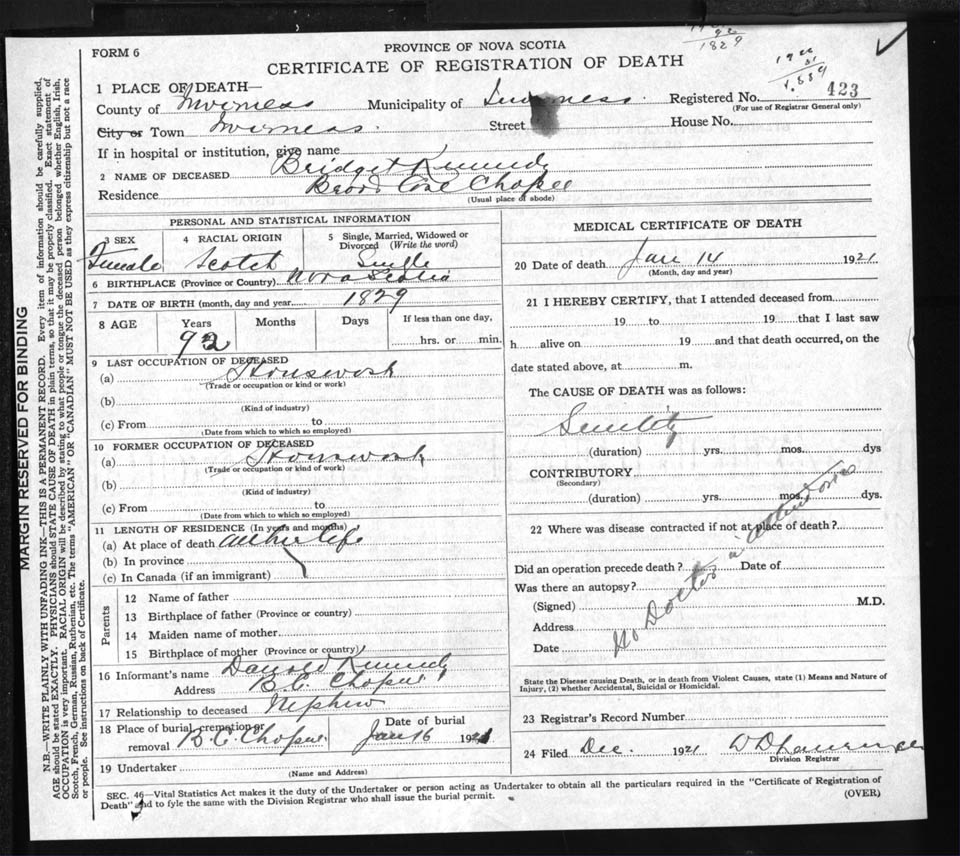 1829
FORM 6
PROVINCE OF NOVA SCOTIA
CERTIFICATE OF REGISTRATION OF DEATH
1 PLACE OF DEATH—
County of Inverness Municipality of Inverness Registered No. 423
(For use of Registrar General only)
City or Town Inverness Street House No.
If in hospital or institution, give name
2 NAME OF DECEASED Bridget Kennedy
Residence Broad Cove Chapel
(Usual place of abode)
PERSONAL AND STATISTICAL INFORMATION
3 SEX
Female
4 RACIAL ORIGIN
Scotch
5 Single, Married, Widowed or Divorced (Write the word)
Single
6 BIRTHPLACE (Province or Country) Nova Scotia
7 DATE OF BIRTH (month, day and year 1829
8 AGE Years Months Days If less than one day,
92 hrs. or min.
9 LAST OCCUPATION OF DECEASED
(a) Housework
(Trade or occupation or kind or work)
(b)
(Kind of industry)
(c) From to
(Date from which to which so employed)
10 FORMER OCCUPATION OF DECEASED
(a) Housework
(Trade or occupation or kind of work)
(b)
(Kind of industry)
(c) From to
(Date from which to which so employed)
11 LENGTH OF RESIDENCE (In years and months)
(a) At place of death all her life
(b) In province
(c) In Canada (if an immigrant)
Parents
12 Name of father
13 Birthplace of father (Province or country)
14 Maiden name of mother
15 Birthplace of mother (Province or country)
16 Informant's name Donald Kennedy
Address B.C. Chapel
17 Relationship to deceased Nephew
18 Place of burial, cremation or removal B.C. Chapel Date of burial Jan 16 1921
19 Undertaker
(Name and Address)
MEDICAL CERTIFICATE OF DEATH
20 Date of death Jan 14 1921
(Month, day and year)
21 I HEREBY CERTIFY, that I attended deceased from
19 to 19 that I last saw
h alive on 19 and that death occurred, on the
date stated above, at m.
The CAUSE OF DEATH was as follows:
Senility
(duration) yrs. mos. dys
CONTRIBUTORY
(Secondary)
(duration) yrs. mos. dys.
22 Where was disease contracted if not at place of death?
Did an operation precede death? Date of
Was there an autopsy?
(Signed) M.D.
Address
Date
No Doctor in attendance
State the Disease causing Death, or in death from Violent Causes, state (1) Means and Nature of
Injury, (2) whether Accidental, Suicidal or Homicidal.
23 Registrar's Record Number
24 Filed Dec. 1921
Division Registrar
SEC. 46—Vital Statistics Act makes it the duty of the Undertaker or person acting as Undertaker to obtain all the particulars required in the "Certificate of Registration of
Death" and to fyle the same with the Division Registrar who shall issue the burial permit.
(OVER)
MARGIN RESERVED FOR BINDING
N.B.—WRITE PLAINLY WITH UNFADING INK—THIS IS A PERMANENT RECORD. Every item of information should be carefully supplied.
AGE should be stated EXACTLY. PHYSICIANS should STATE CAUSE OF DEATH in plain terms, so that it may be properly classified. Exact statement of
OCCUPATION is very important. RACIAL ORIGIN will be described by stating to what people or tongue the deceased person belonged whether English, Irish,
Scotch, French, German, Russian, Ruthenian, etc. The terms "AMERICAN" OR "CANADIAN" MUST NOT BE USED as they express citizenship but not a race
or people. See instructions on back of Certificate.